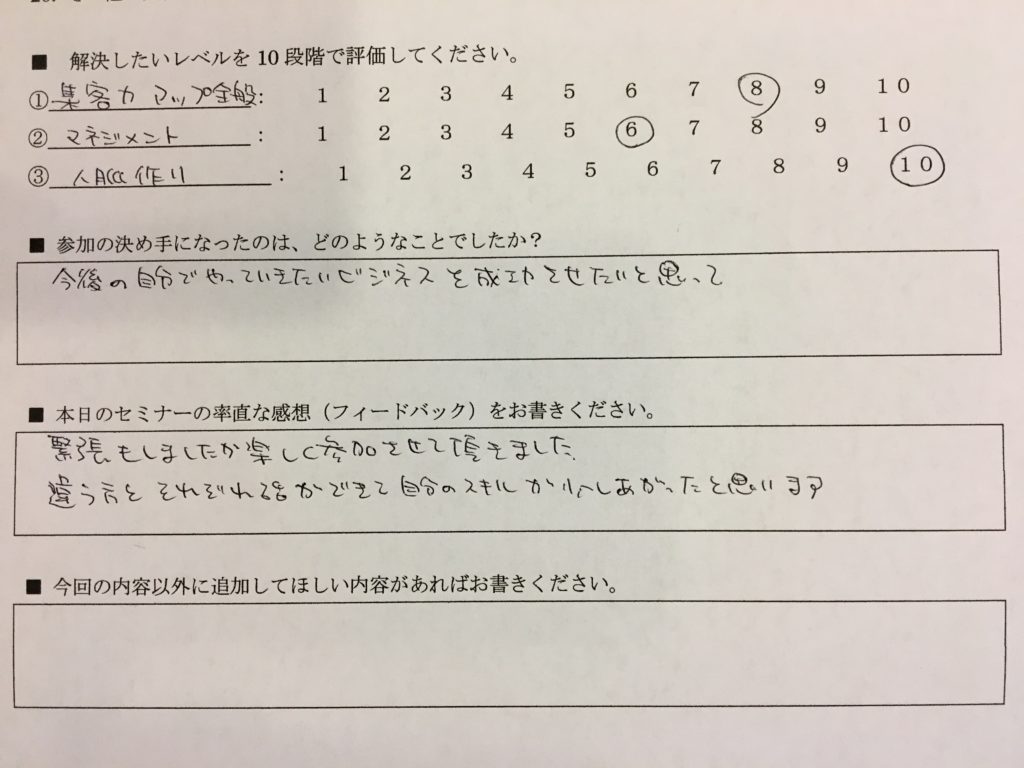 ■ 解決したいレベルを 10 段階で評価してください。
① 集客力 アップ全般 : 1 2 3 4 5 6 7 8 9 10
② マネジメント : 1 2 3 4 5 6 7 8 9 10
③ 人脈作り : 1 2 3 4 5 6 7 8 9 10
■ 参加の決め手になったのは、どのようなことでしたか？
今後の自分でやっていきたいビジネスを成功させたいと思って
■ 本日のセミナーの率直な感想（フィードバック）をお書きください。
緊張もしましたが楽しく参加させて頂きました。
違う方とそれぞれ話ができて自分のスキルが少しあがったと思います
■ 今回の内容以外に追加してほしい内容があればお書きください。